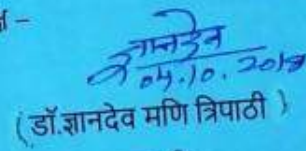 ज्ञानदेव
04.10.2018
(डॉ.ज्ञानदेव मणि त्रिपाठी )